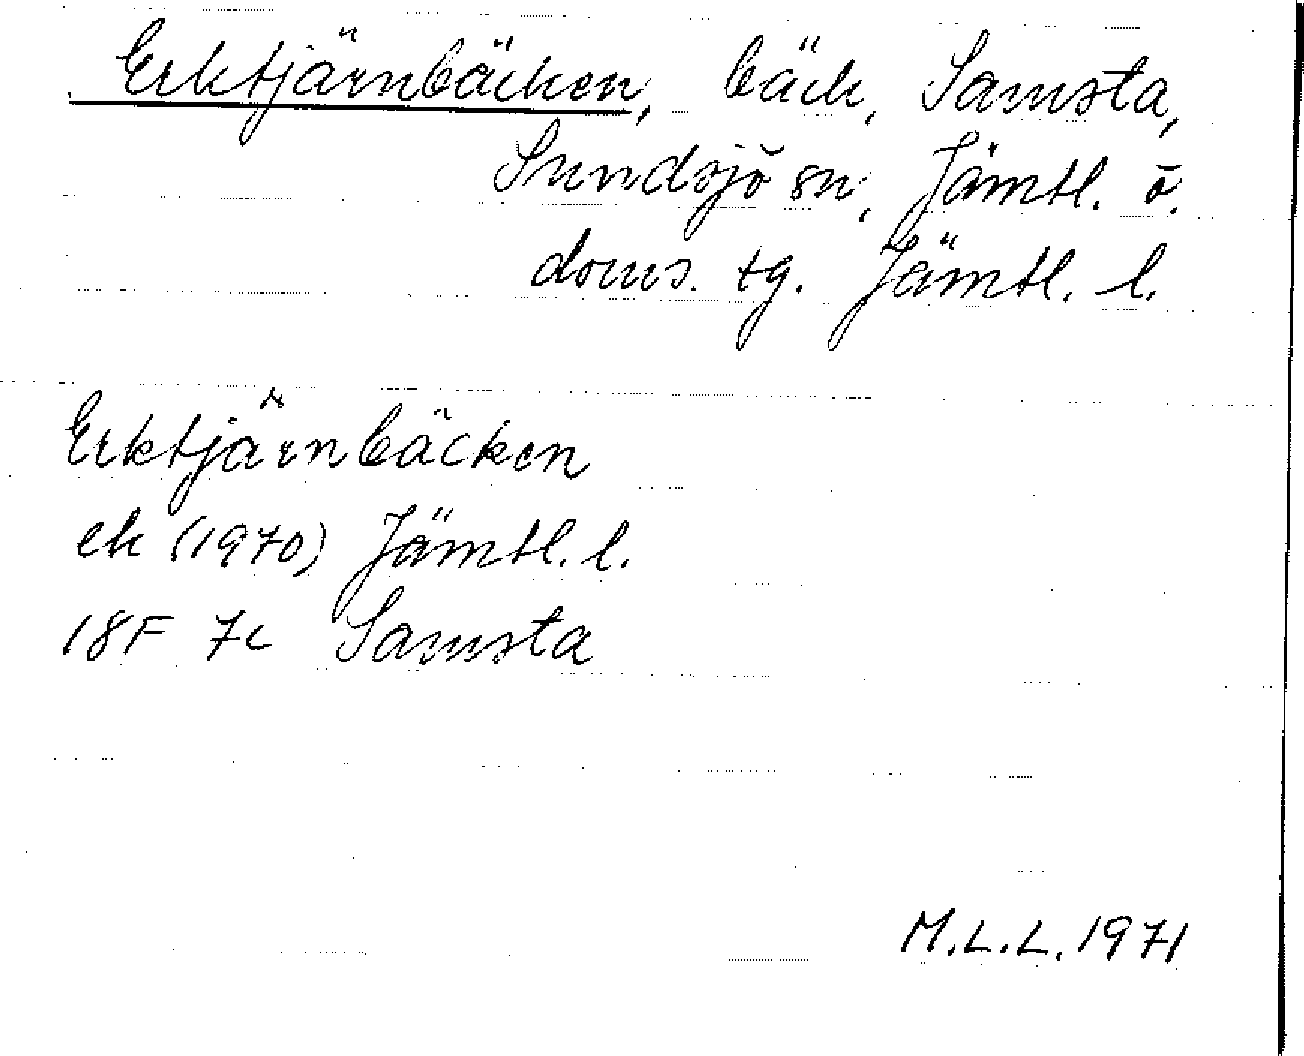 Erktjärnbäcken, bäck, Samsta,
Sundsjö sn, Jämtl. ö.
doms. tg. Jämtl. l.
Erktjärnbäcken
ek (1970) Jämtl. l.
18F 7c Samsta
M.L.L. 1971